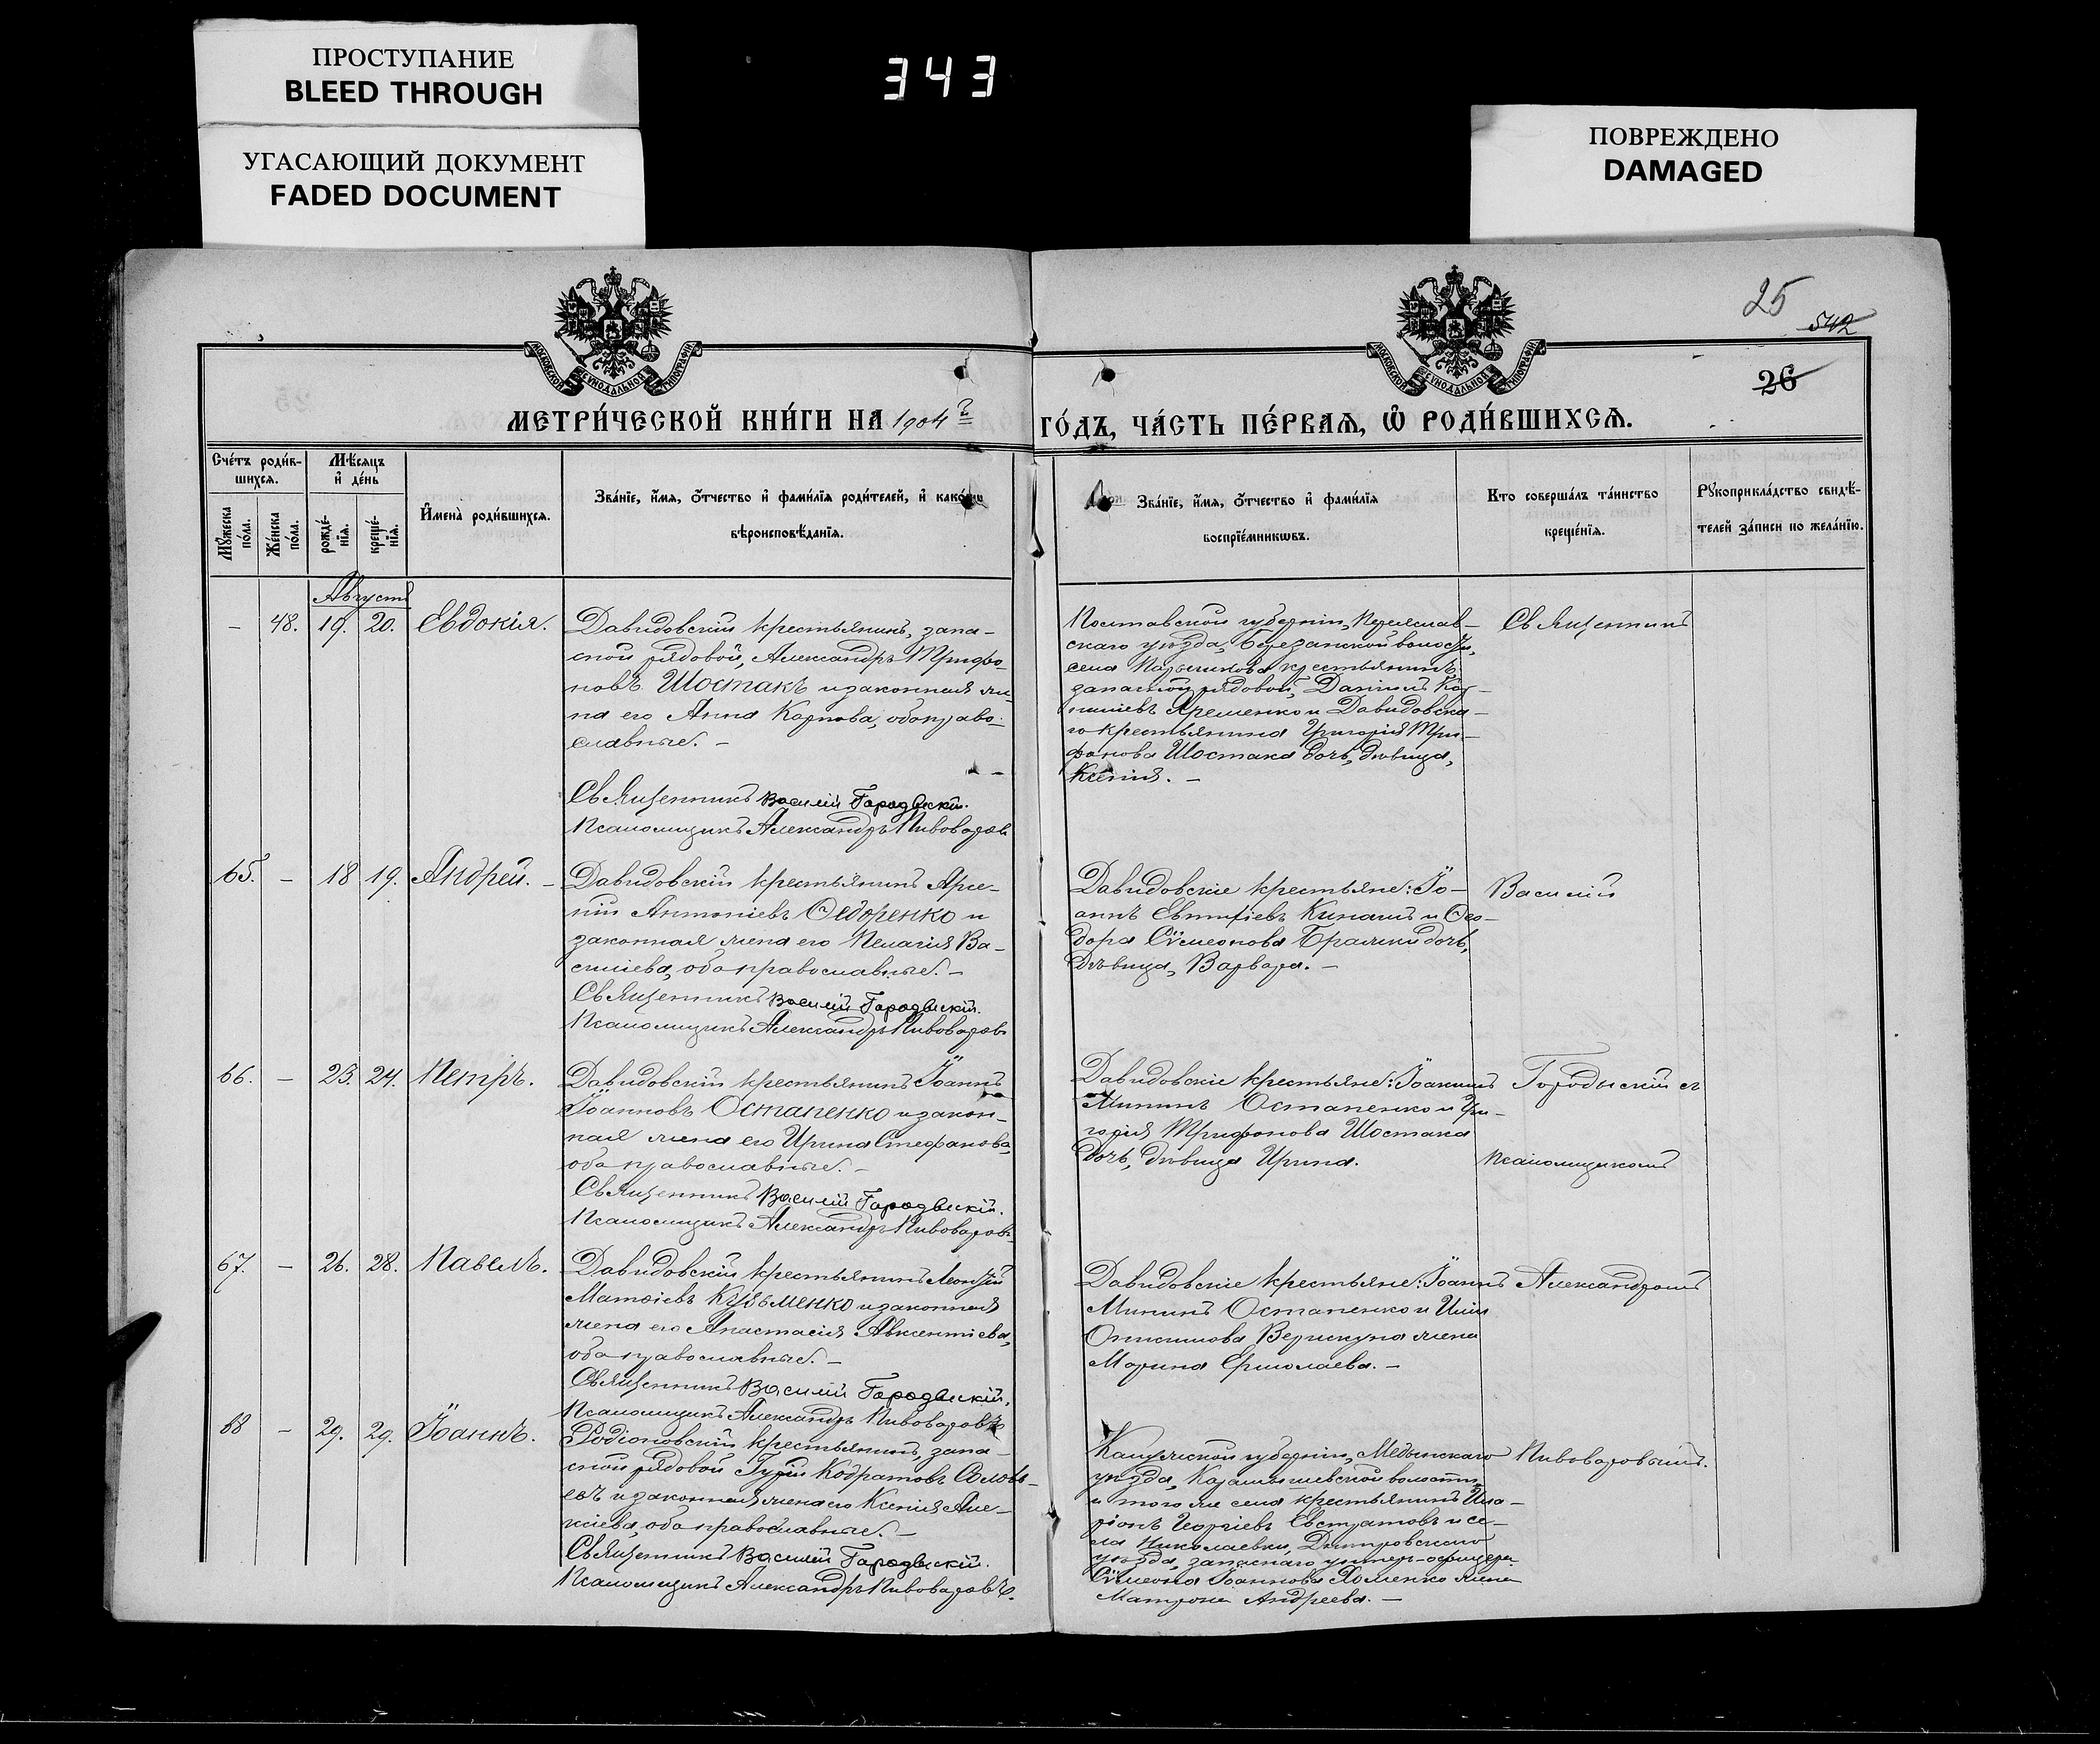 ПРОСТУПАНИЕ
BLEED THROUGH
УГАСАЮЩИЙ ДОКУМЕНТ
FADED DOCUMENT
343
ПОВРЕЖДЕНО
DAMAGED
25
542
26
МОСКОВСКОЙ СѴНОДАЛЬНОЙ ТИПОГРАФІИ
МОСКОВСКОЙ СѴНОДАЛЬНОЙ ТИПОГРАФІИ
МЕТРИ́ЧЕСКОЙ КНИ́ГИ НА 1904 ГО́ДЪ, ЧА́СТЬ ПЕ́РВАѦ, Ѽ РОДИ́ВШИХСѦ.
Сче́тъ роди́в-
шихсѧ.
Мꙋ́жеска по́ла.
Же́нска по́ла.
Мѣ́сѧцъ
и҆ де́нь
рожде́-
нїѧ.
креще́-
нїѧ.
И҆мена̀ роди́вшихсѧ.
Зва́нїе, и҆́мѧ, ѻ҆́тчество и҆ фами́лїѧ роди́телей, и҆ како́гѡ
вѣроисповѣ́данїѧ.
Зва́нїе, и҆́мѧ, ѻ҆́тчество и҆ фами́лїѧ
воспрїе́мникѡвъ.
Кто соверша́лъ та́инство
креще́нїѧ.
Рꙋкоприкла́дство свидѣ́-
телей за́писи по жела́нїю.
Августъ
– 48. 19. 20. Евдокія.
Давидовскій крестьянинъ, запа-
сной рядовой, Александръ Трифо-
новъ Шостакъ и законная же-
на его Анна Карпова, оба право-
славные. –
Священникъ Василій Городыскій.
Псаломщикъ Александръ Пивоваровъ
Полтавской губерніи, Переяслав-
скаго уѣзда, Березанской волости,
села крестьянинъ
запасной рядовой, Даніилъ Кор-
ниліевъ Яременко и Давидовска-
го крестьянина Григорія Три-
фонова Шостака дочь, дѣвица,
Ксенія. –
Священникъ
65. – 18 19. Андрей. –
Давидовскій крестьянинъ Арсе-
ній Антоніевъ Ѳедоренко и
законная жена его Пелагія Ва-
силіева, оба православные. –
Священникъ Василій Городыскій.
Псаломщикъ Александръ Пивоваровъ
Давидовскіе крестьяне: Іо-
аннъ Евтихіевъ и Ѳео-
дора Сѵмеонова дочь,
дѣвица, Варвара. –
Василій
66. – 23. 24. Петръ.
Давидовскій крестьянинъ Іоаннъ
Іоанновъ Остапенко и закон-
ная жена его Ирина Стефанова,
оба православные. –
Священникъ Василій Городыскій.
Псаломщикъ Александръ Пивоваровъ
Давидовскіе крестьяне: Іоакимъ
Мининъ Остапенко и Гри-
горія Трифонова Шостака
дочь, дѣвица Ирина.
Городыскій съ
псаломщикомъ
67. – 26. 28. Павелъ.
Давидовскій крестьянинъ Леонтій
Матѳіевъ Кузьменко и законная
жена его Анастасія Авксентіева,
оба православные. –
Священникъ Василій Городыскій.
Псаломщикъ Александръ Пивоваровъ
Давидовскіе крестьяне: Іоаннъ
Мининъ Остапенко и
Онисимова жена
Марина Ермолаева. –
Александромъ
68 – 29. 29. Іоаннъ.
Родіоновскій крестьянинъ, запа-
сной рядовой Гурій Кодратовъ Соловь-
евъ и законная жена его Ксенія Але-
ксіева, оба православные. –
Священникъ Василій Городыскій.
Псаломщикъ Александръ Пивоваровъ.
Калужской губерніи, Медынскаго
уѣзда, волости
и того же села крестьянинъ Ила-
ріонъ Георгіевъ Евстратовъ и се-
ла Николаевки, Дмитровскаго
уѣзда, запаснаго унтеръ-офицера
Сѵмеона Іоаннова Хоменко жена
Матрона Андреева. –
Пивоваровымъ.